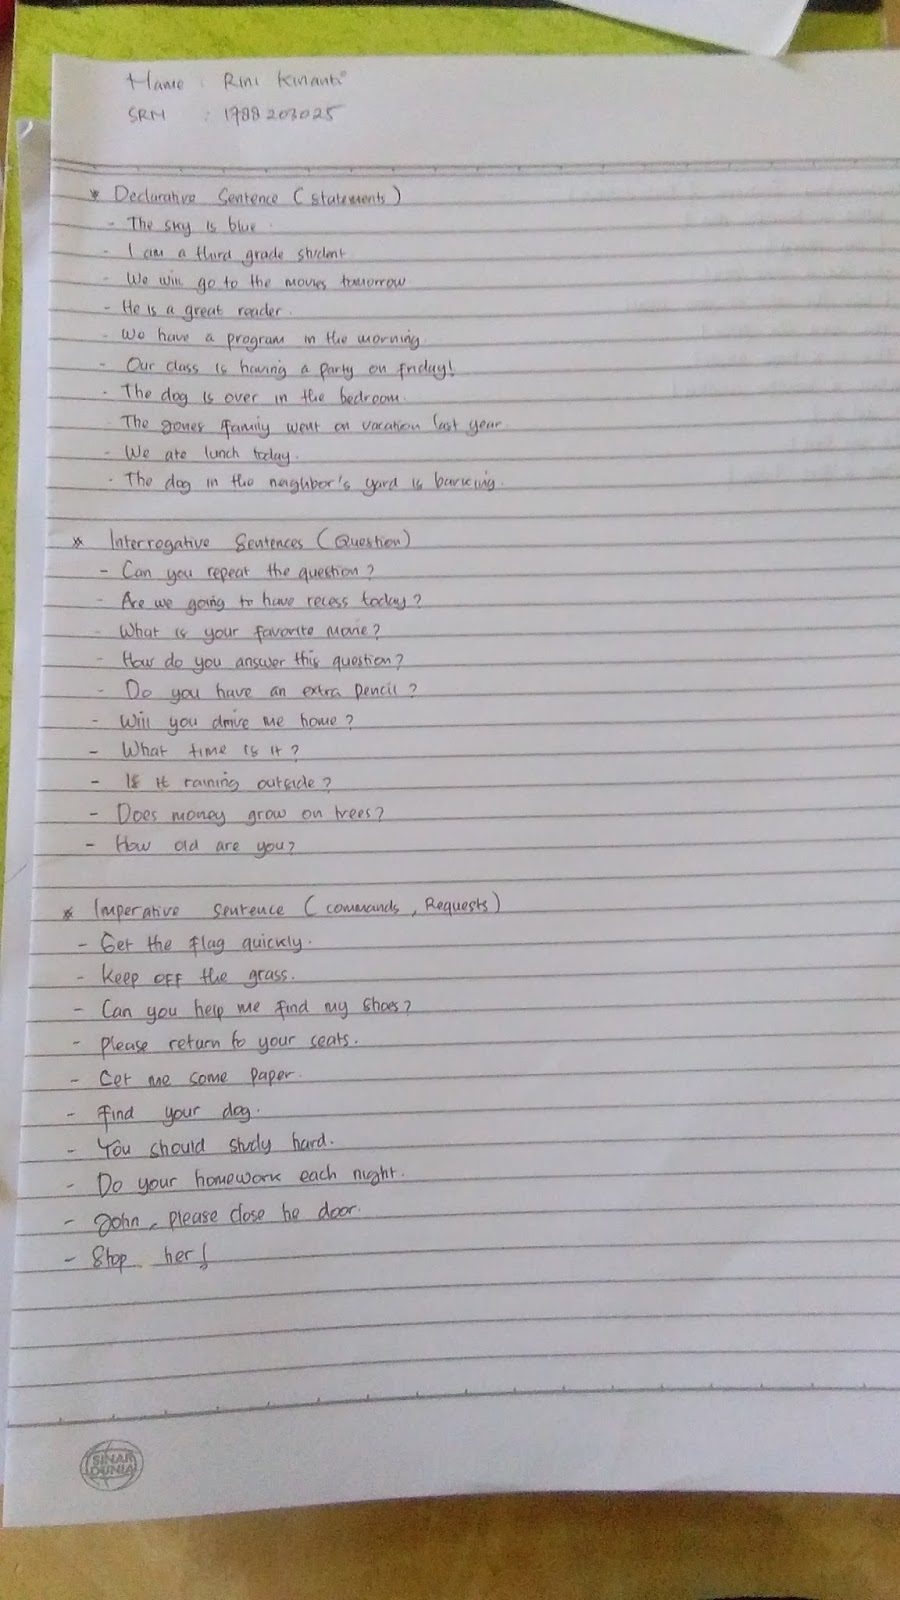 Name : Rini Kinanti
SRN : 1788203025
* Declarative Sentence (statements)
- The sky is blue.
- I am a third grade student
- We will go to the movies tomorrow
- He is a great reader.
- We have a program in the morning.
- Our class is having a party on friday!
- The dog is over in the bedroom.
The Jones family went on vacation last year.
- We ate lunch today.
- The dog in the neighbor's yard is barking.
* Interrogative Sentences (Question)
- Can you repeat the question?
- Are we going to have recess today?
- What is your favorite movie?
- How do you answer this question?
- Do you have an extra pencil?
- Will you drive me home?
- What time is it?
- Is it raining outside?
- Does money grow on trees?
- How old are you?
* Imperative Sentence (commands, Requests)
- Get the flag quickly.
- Keep OFF the grass.
- Can you help me find my shoes?
- please return to your seats.
- Get me some paper.
- Find your dog.
- You should study hard.
- Do your homework each night.
- John, please close he door.
- Stop her!
SINAR DUNIA